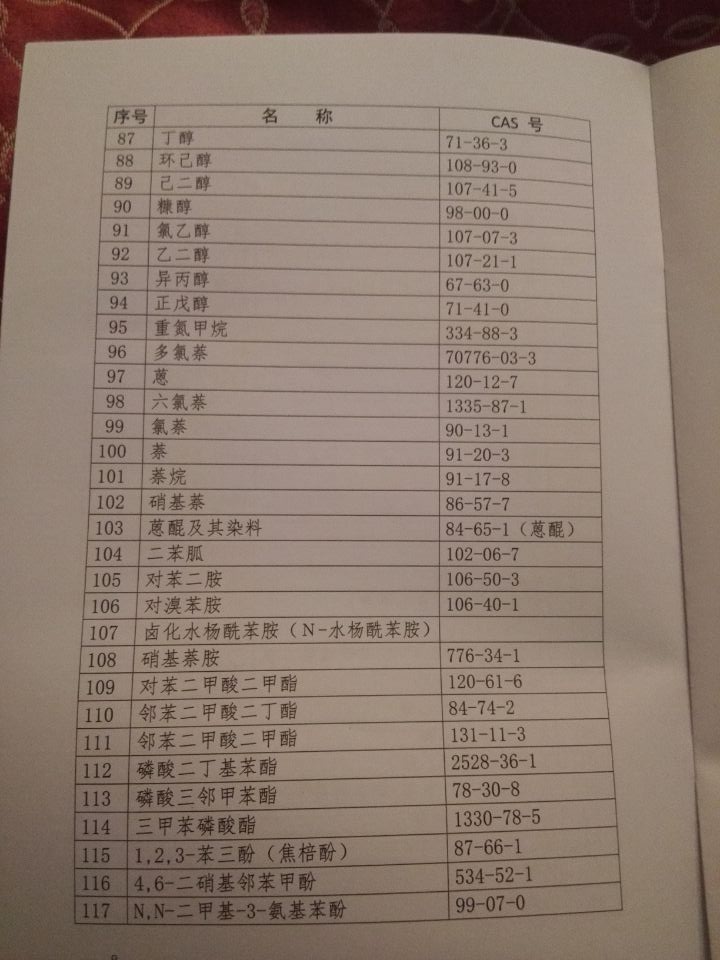 序号 名 称 CAS 号
87 丁醇 71-36-3
88 环己醇 108-93-0
89 己二醇 107-41-5
90 糠醇 98-00-0
91 氯乙醇 107-07-3
92 乙二醇 107-21-1
93 异丙醇 67-63-0
94 正戊醇 71-41-0
95 重氮甲烷 334-88-3
96 多氯萘 70776-03-3
97 蒽 120-12-7
98 六氯萘 1335-87-1
99 氯萘 90-13-1
100 萘 91-20-3
101 萘烷 91-17-8
102 硝基萘 86-57-7
103 蒽醌及其染料 84-65-1（蒽醌）
104 二苯胍 102-06-7
105 对苯二胺 106-50-3
106 对溴苯胺 106-40-1
107 卤化水杨酰苯胺（N-水杨酰苯胺）
108 硝基萘胺 776-34-1
109 对苯二甲酸二甲酯 120-61-6
110 邻苯二甲酸二丁酯 84-74-2
111 邻苯二甲酸二甲酯 131-11-3
112 磷酸二丁基苯酯 2528-36-1
113 磷酸三邻甲苯酯 78-30-8
114 三甲苯磷酸酯 1330-78-5
115 1,2,3-苯三酚（焦棓酚） 87-66-1
116 4,6-二硝基邻苯甲酚 534-52-1
117 N,N-二甲基-3-氨基苯酚 99-07-0